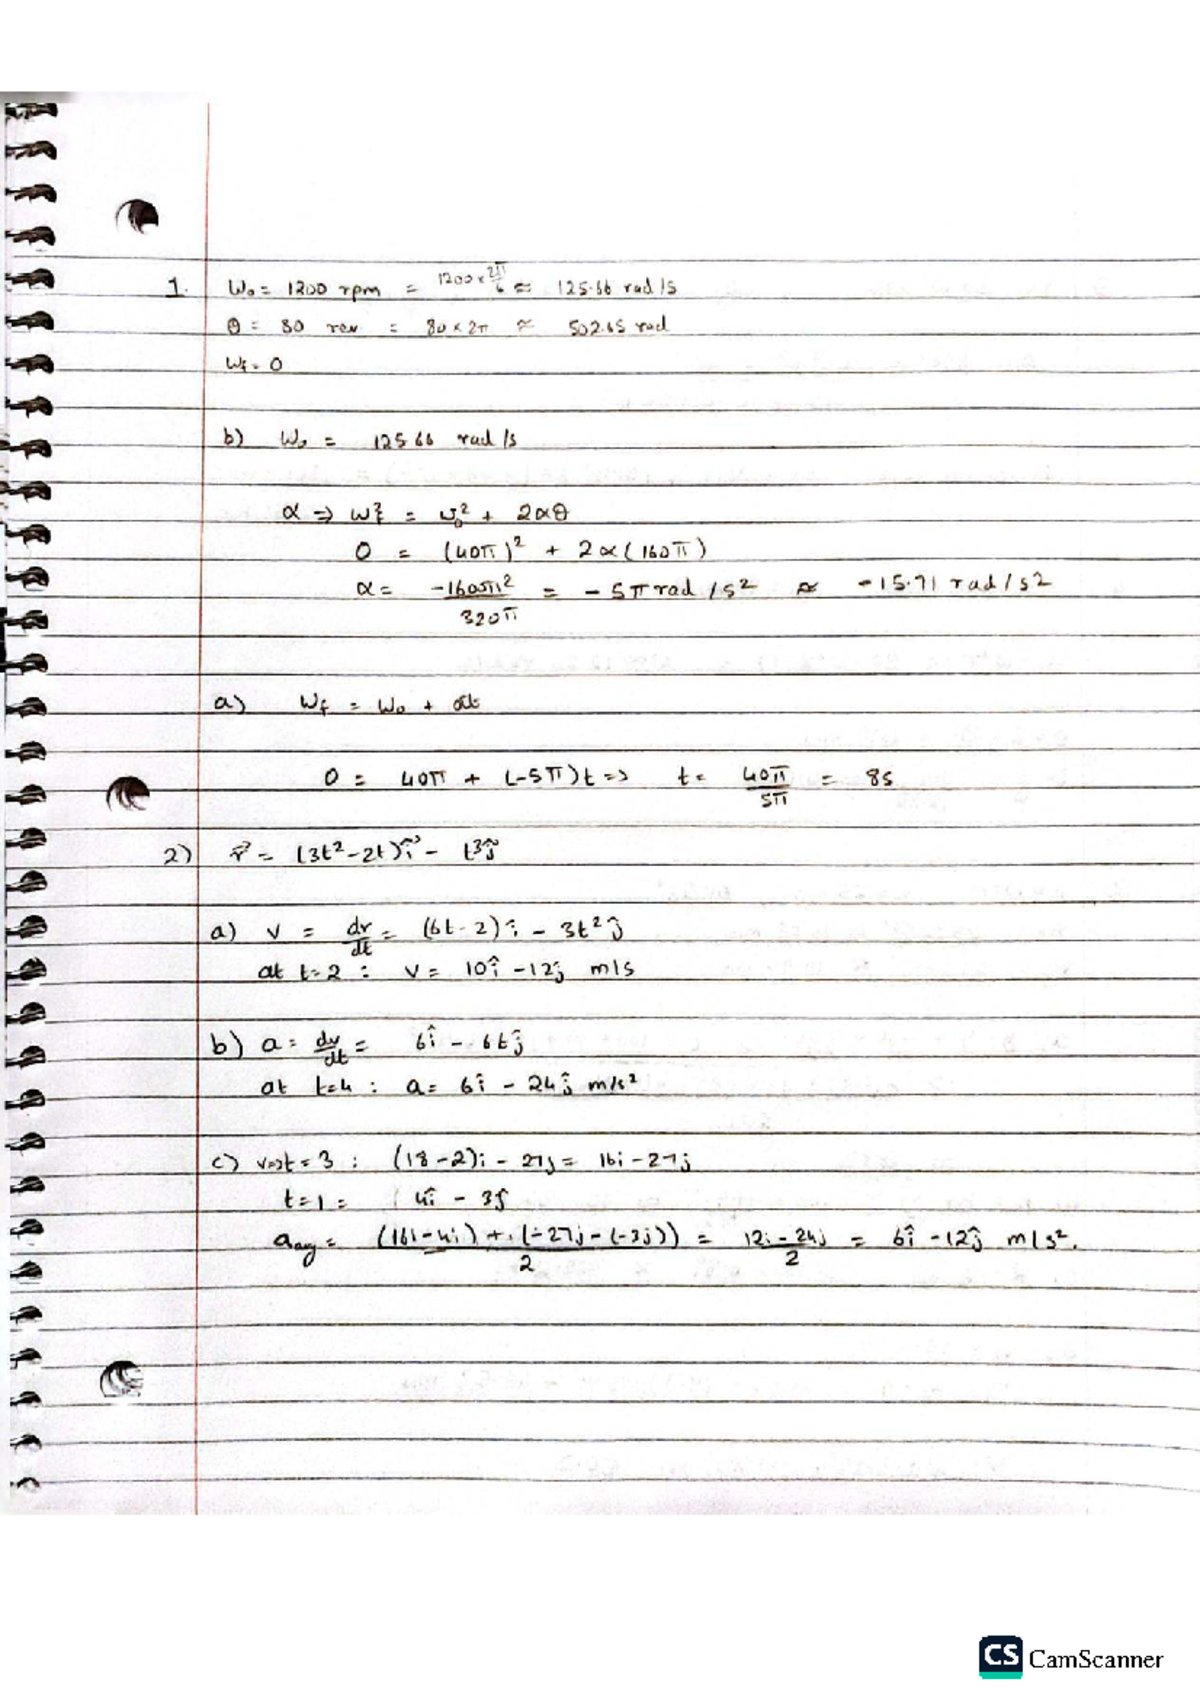 1. W₀ = 1200 rpm = 1200 × 2π/6 ≈ 125.66 rad/s
θ = 80 rev = 80 × 2π ≈ 502.65 rad
Wf = 0
b) W₀ = 125.66 rad/s
α ⇒ Wf² = W₀² + 2αθ
0 = (40π)² + 2α(160π)
α = -1600π²/320π = -5π rad/s² ≈ -15.71 rad/s²
a) Wf = W₀ + αt
0 = 40π + (-5π)t ⇒ t = 40π/5π = 8s
2) r⃗ = (3t²-2t)î - t³ĵ
a) v = dr/dt = (6t-2)î - 3t²ĵ
at t=2 : v = 10î - 12ĵ m/s
b) a = dv/dt = 6î - 6tĵ
at t=4 : a = 6î - 24ĵ m/s²
c) v⇒t = 3 : (18-2)i - 27j = 16i - 27j
t=1 = 4î - 3ĵ
a avg = (16i-4i) + (-27j-(-3j))/2 = 12i-24j/2 = 6î - 12ĵ m/s².
CS CamScanner